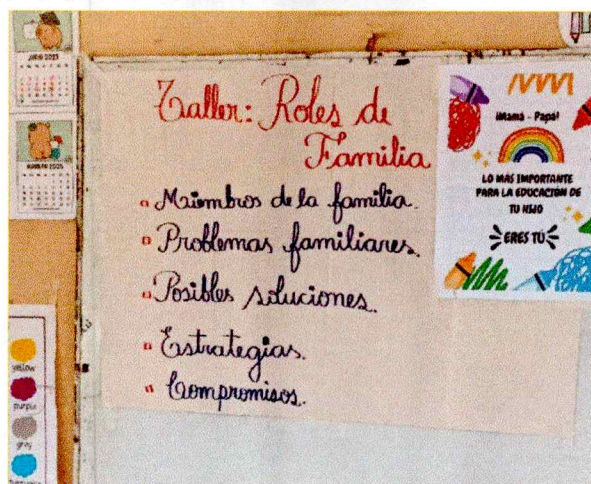 Taller: Roles de
Familia
Miembros de la familia.
Problemas familiares.
Posibles soluciones.
Estrategias.
Compromisos.
¡Mamá - Papá!
LO MAS IMPORTANTE
PARA LA EDUCACIÓN DE
TU HIJO
ERES TÚ
yellow
purple
grey